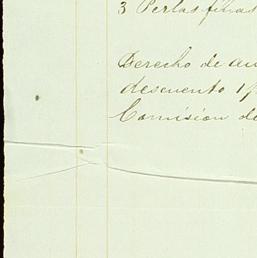 3 Perlas finas
Derecho de
descuento
Comision de